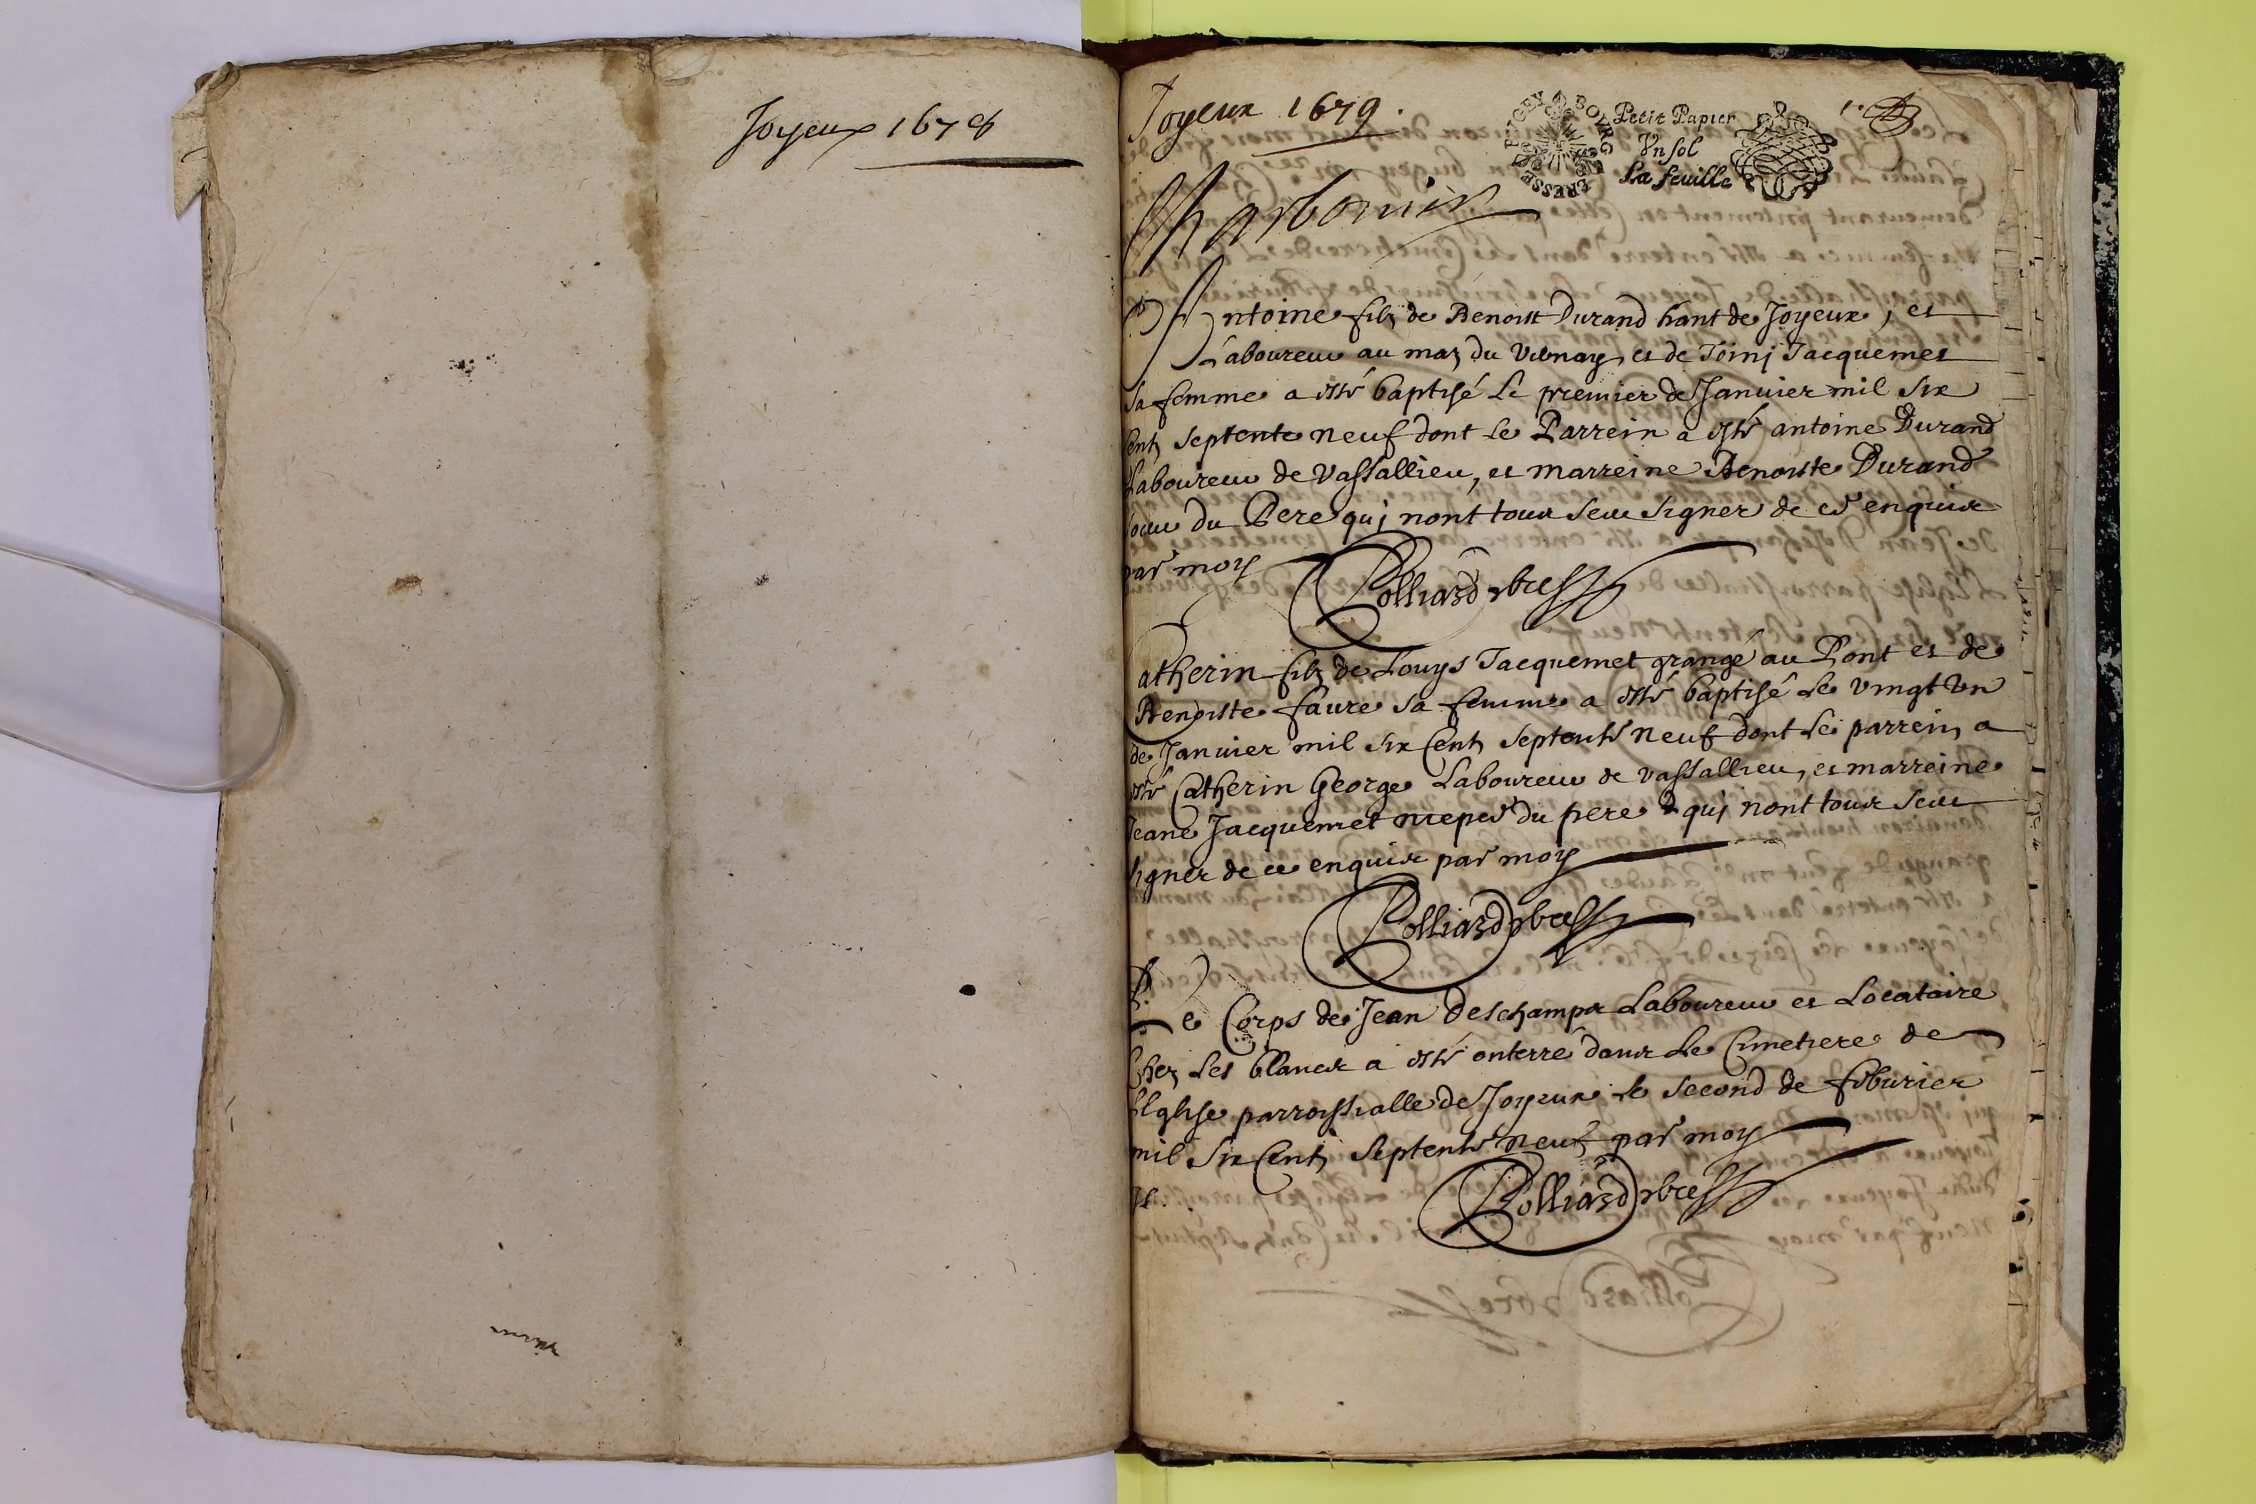 Joyeux 1678
Joyeux 1679.
BOURG BRESSE BUGEY
Petit Papier
Vn sol
La feuille
1er
Charbonnier
Antoine filz de Benoist Durand hant de Joyeux, et
Laboureur au maz du Vernay, et de Toinj Jacquemet
sa femme a esté baptisé le premier de Janvier mil six
Cent septente neuf dont le Parrein a esté antoine Durand
Laboureur de Vassallieu, et marreine Benoiste Durand
soeur du Pere qui nont tous sceu signer de ce enquis
par moy
Polliard pbre
Catherin filz de Louys Jacquemet grangé au Pont et de
Benoiste faure sa femme a esté baptisé le vingt Vn
de Janvier mil six Cent septente neuf dont le parrein a
esté Catherin George Laboureur de vassallieu, et marreine
Jeane Jacquemet niepce du pere & qui nont tous sceu
signer de ce enquis par moy
Polliard pbre
Le Corps de Jean Deschamps Laboureur et Locataire
Chez les blancs a esté enterré dans le Cimetiere de
lEglise parroissialle de Joyeux le second de feburier
mil six Cent septente neuf par moy
Polliard pbre